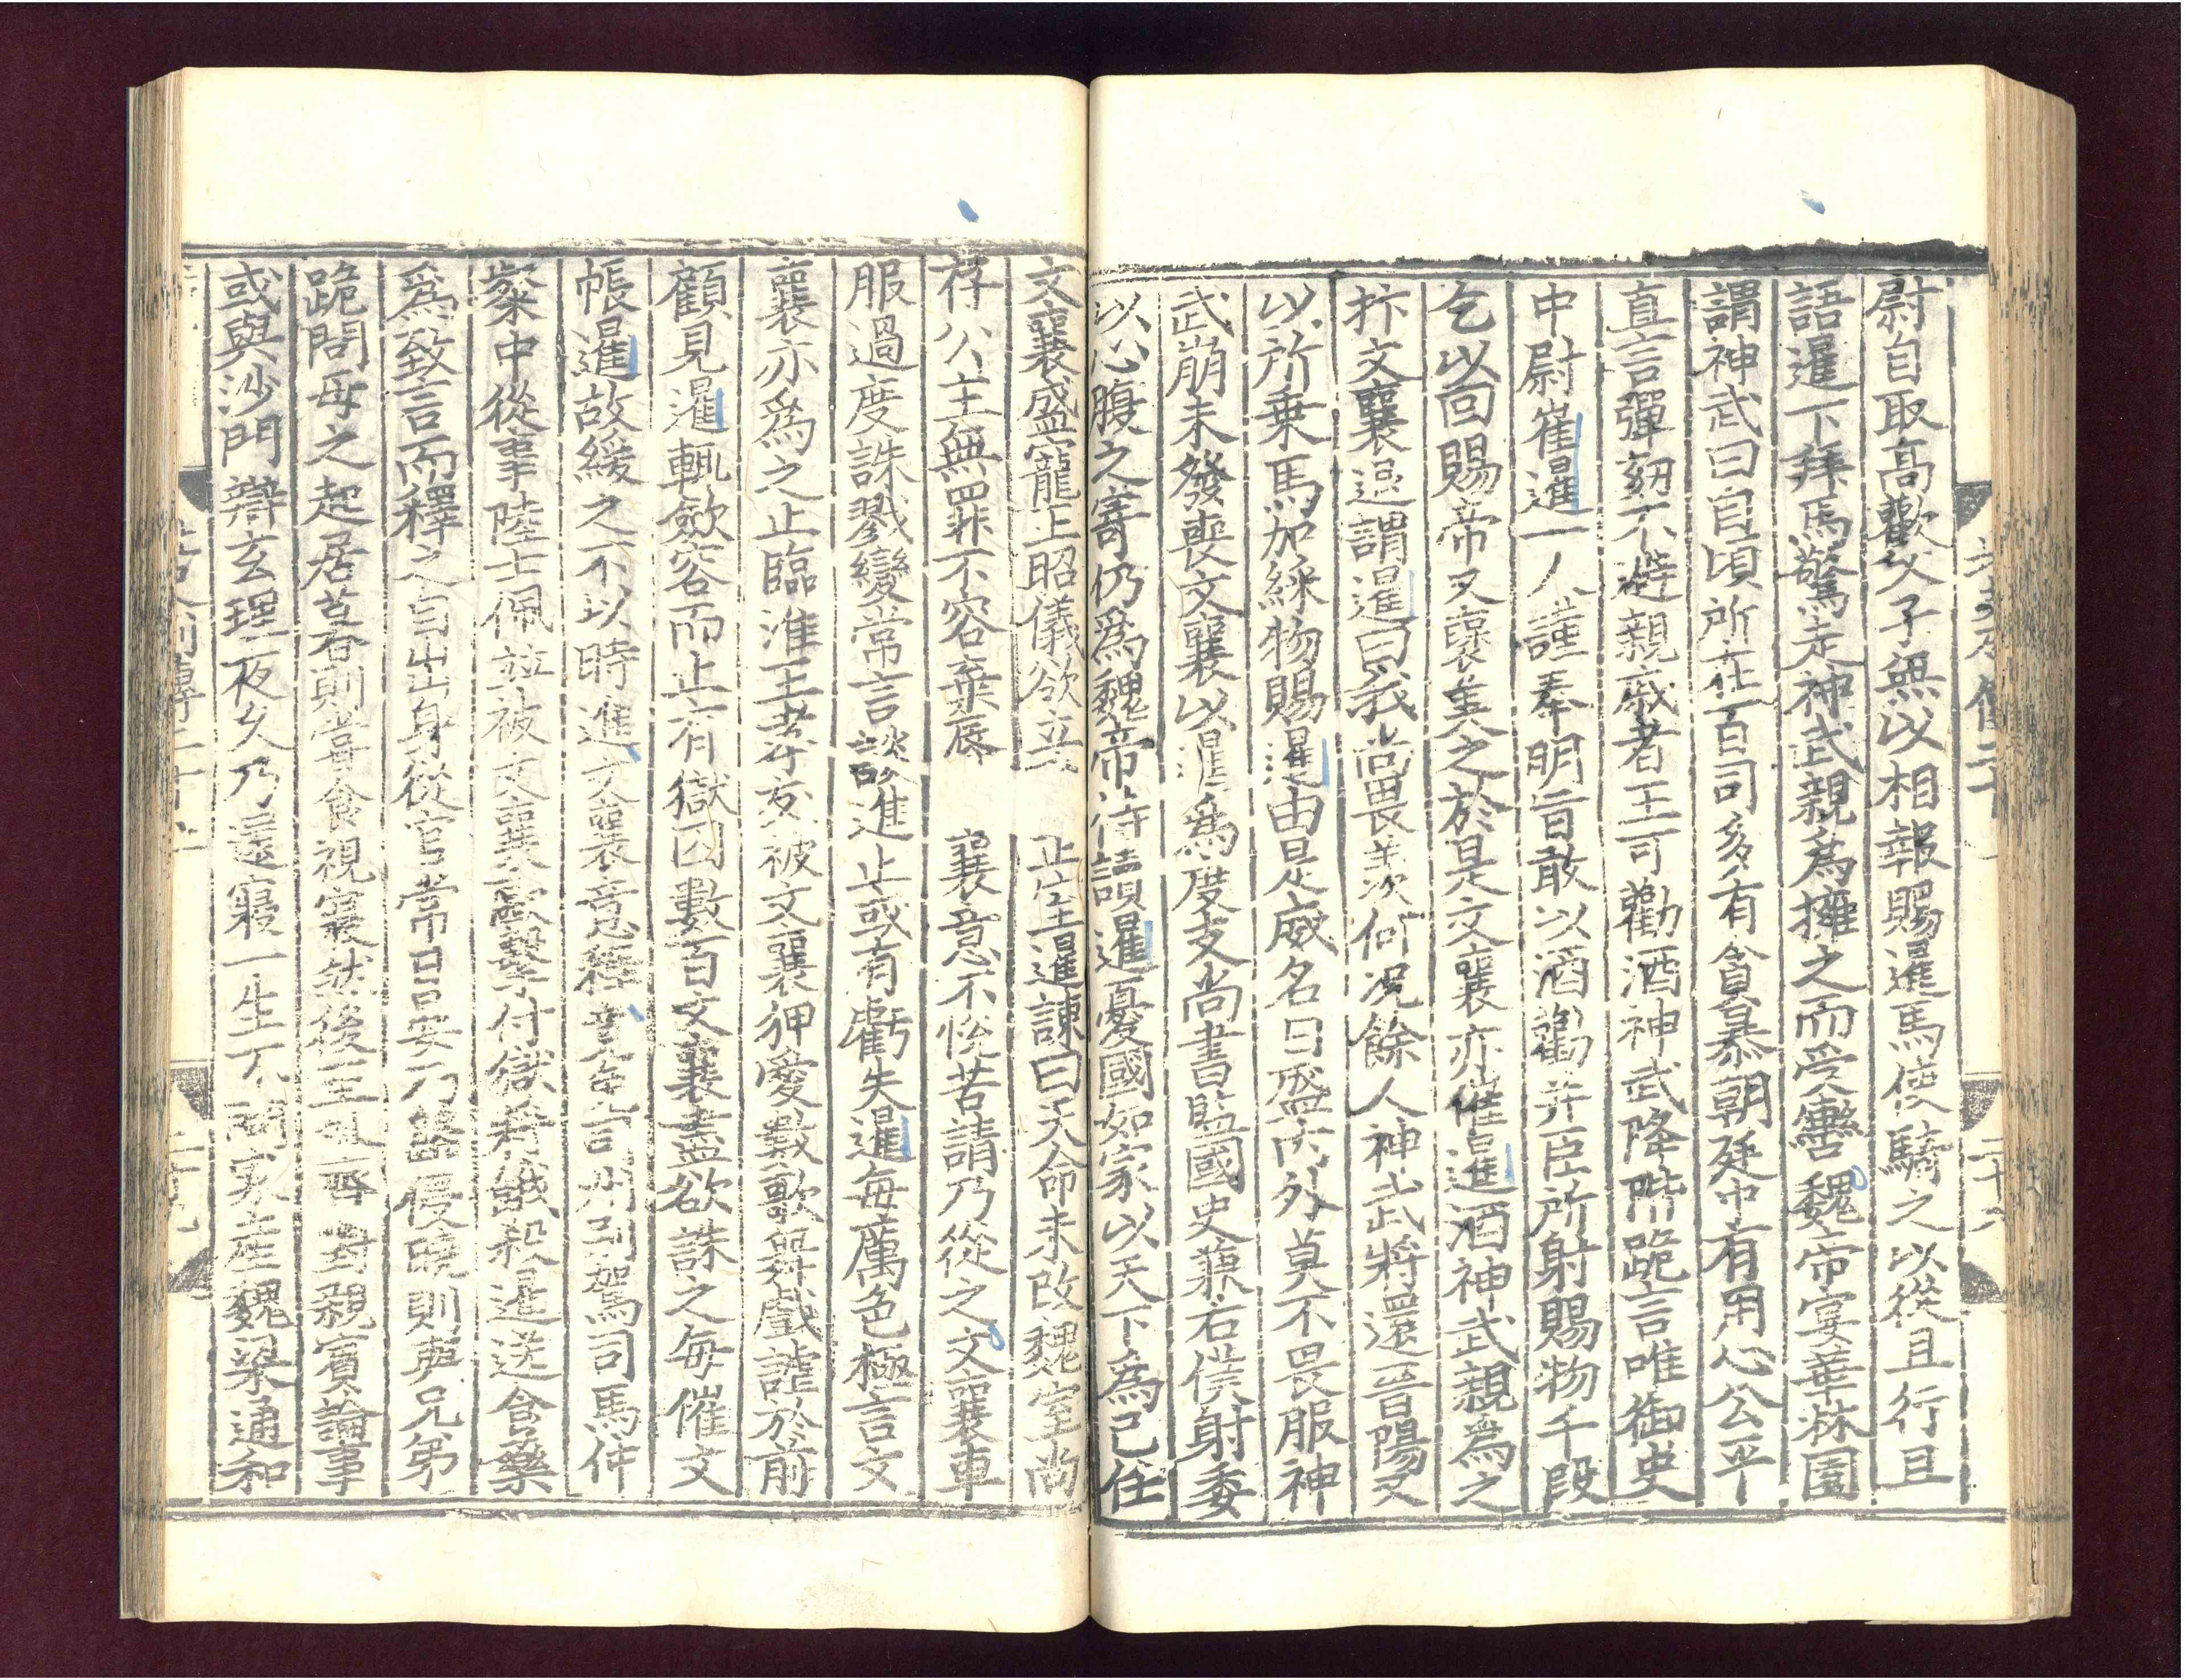 尉自取高歡父子無以相報賜暹馬使騎之以從且行且
語暹下拜馬驚走神武親爲擁之而受轡魏帝宴華林園
謂神武曰自頃所在百司多有貪暴朝廷中有用心公平
直言彈劾不避親戚者王可勸酒神武降階跪言唯御史
中尉崔暹一人謹奉明旨敢以酒勸并臣所射賜物千段
乞以回賜帝又襃美之於是文襄亦催暹酒神武親爲之
抃文襄退謂暹曰我尚畏羨何況餘人神武將還晉陽又
以所乗馬加綵物賜暹由是威名日盛內外莫不畏服神
武崩未發喪文襄以暹爲度支尚書監國史兼右僕射委
以心腹之寄仍爲魏帝侍讀暹憂國如家以天下爲己任
文襄盛寵王昭儀欲立 正室暹諫曰天命未改魏室尚
存公主無罪不容棄辱 襄意不悅苦請乃從之文襄車
服過度誅戮變常言談進止或有虧失暹每厲色極言文
襄亦爲之止臨淮王孝友被文襄狎愛數歌舞戲謔於前
顧見暹輒斂容而止有獄囚數百文襄盡欲誅之每催文
帳暹故緩之不以時進文襄意釋竟 司馬仲
粲中從事陸士佩並被文襄毆擊付獄將餓殺暹送食藥
爲致言而釋之自出身從官常日晏乃歸侵曉則與兄弟
跪問母之起居暮則嘗食視寢然後至外齋對親賓論事
或與沙門辯玄理夜久乃還寢一生不問家産魏梁通和